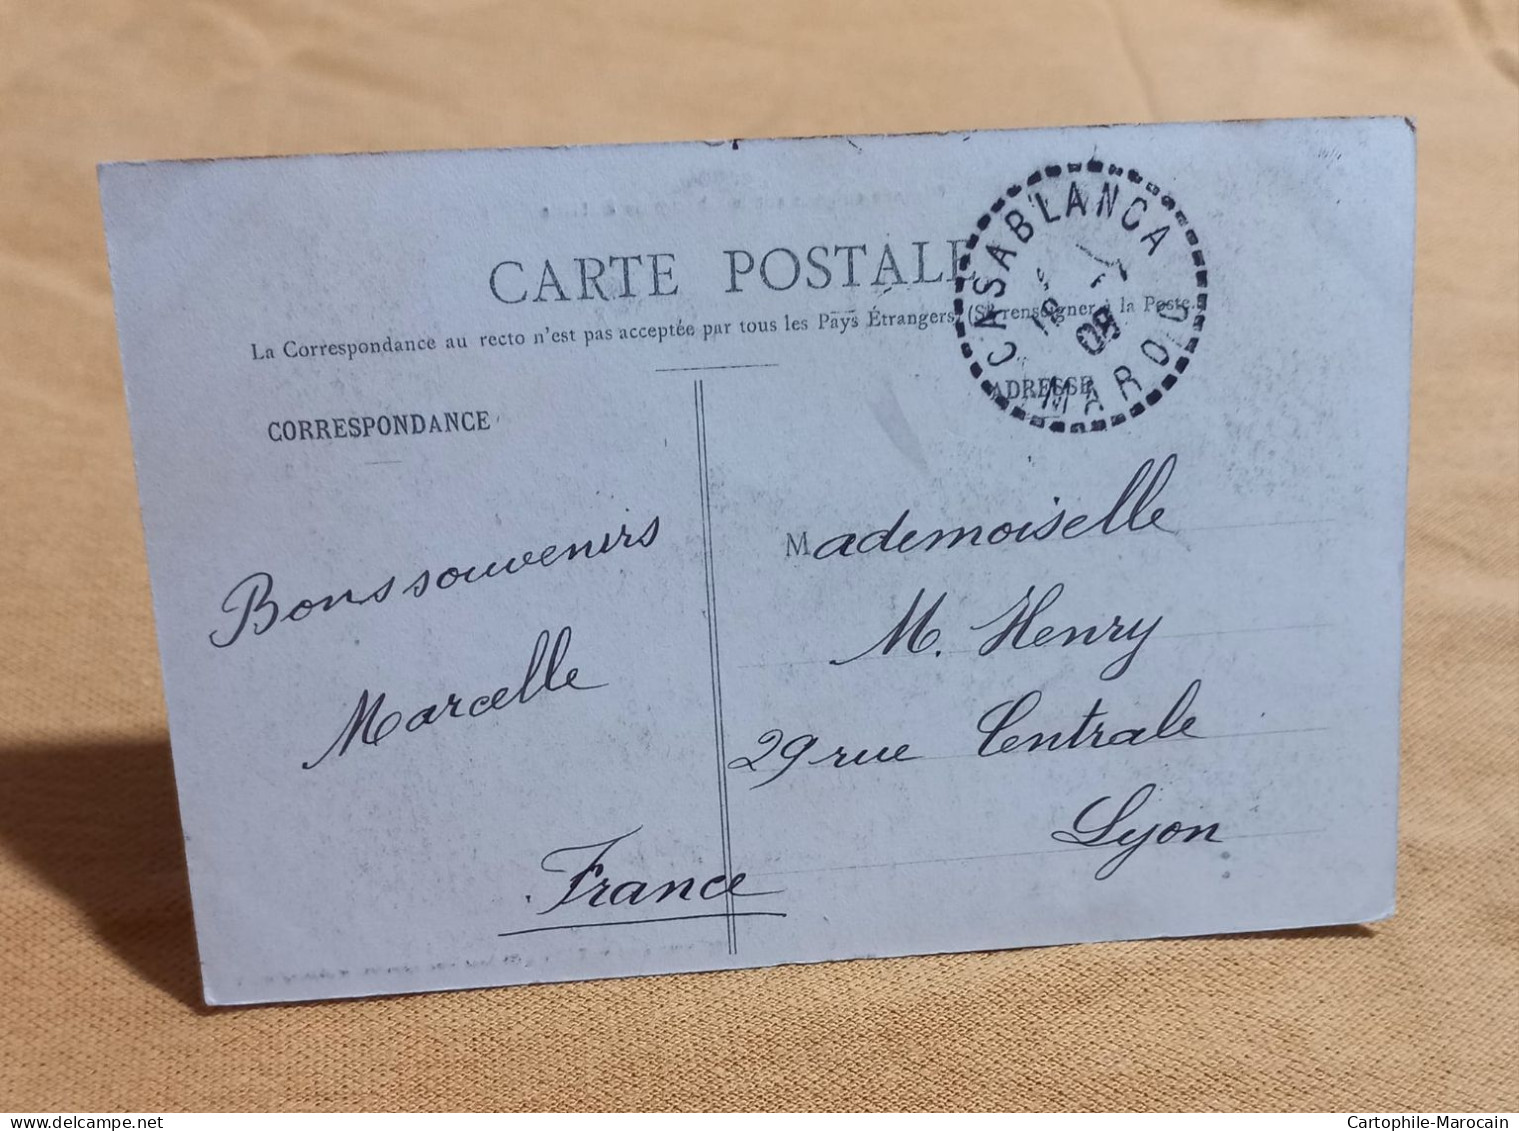 CARTE POSTALE
La Correspondance au recto n'est pas acceptée par tous les Pays Étrangers (Se renseigner à la Poste.)
CORRESPONDANCE
ADRESSE
CASABLANCA
MAROC
Bons souvenirs
Marcelle
Mademoiselle
M. Henry
29 rue Centrale
Lyon
France
Cartophile-Marocain